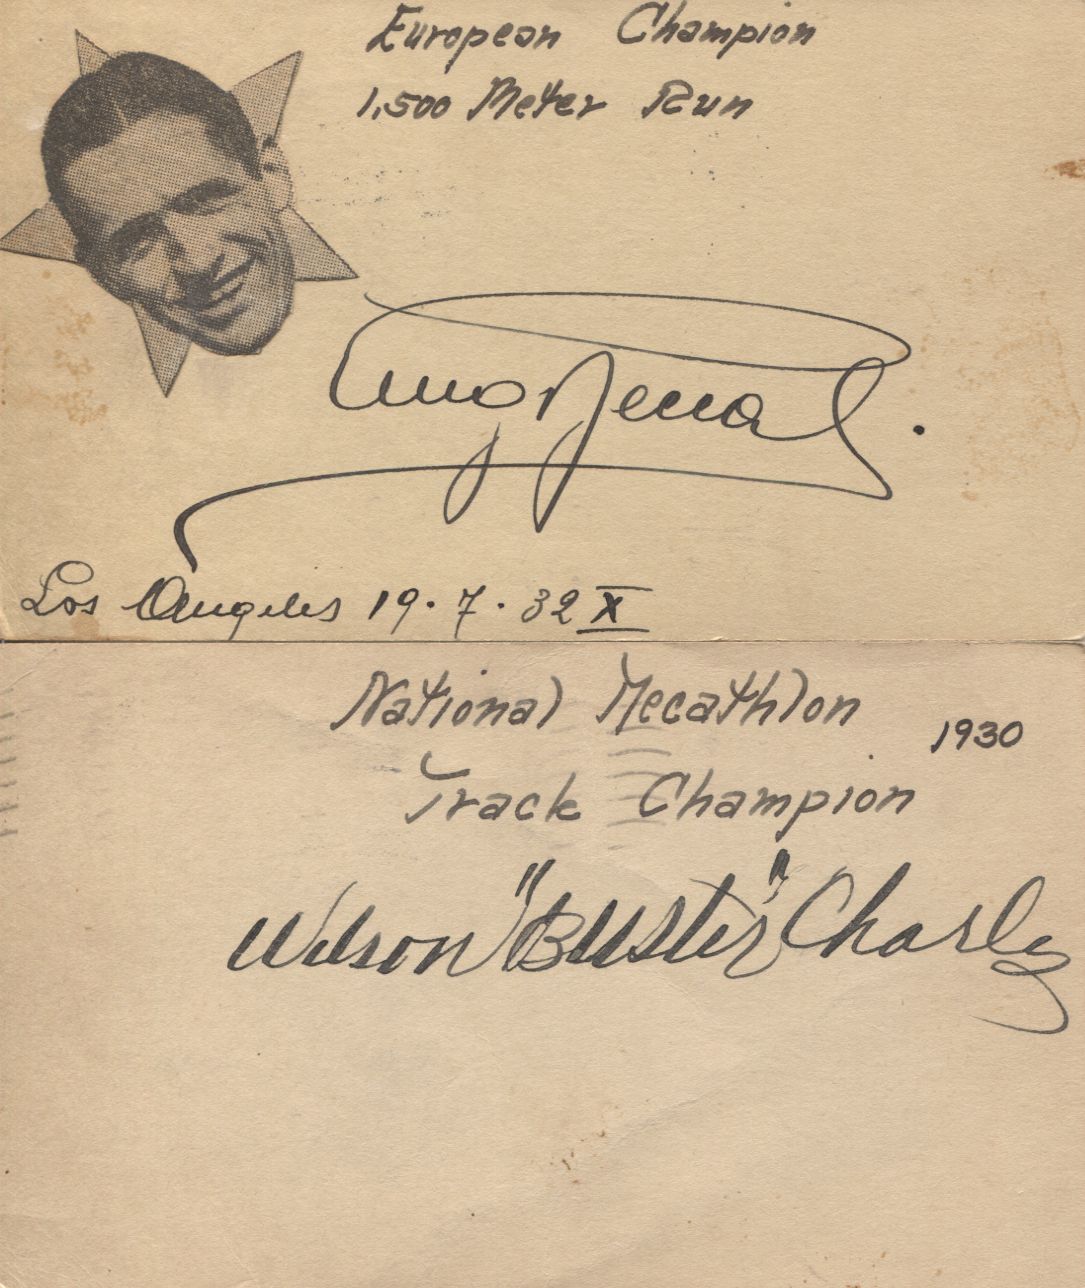 European Champion
1,500 Meter Run
Luigi Beccali
Los Angeles 19.7.32 X
National Decathlon 1930
Track Champion
Wilson "Buster" Charles